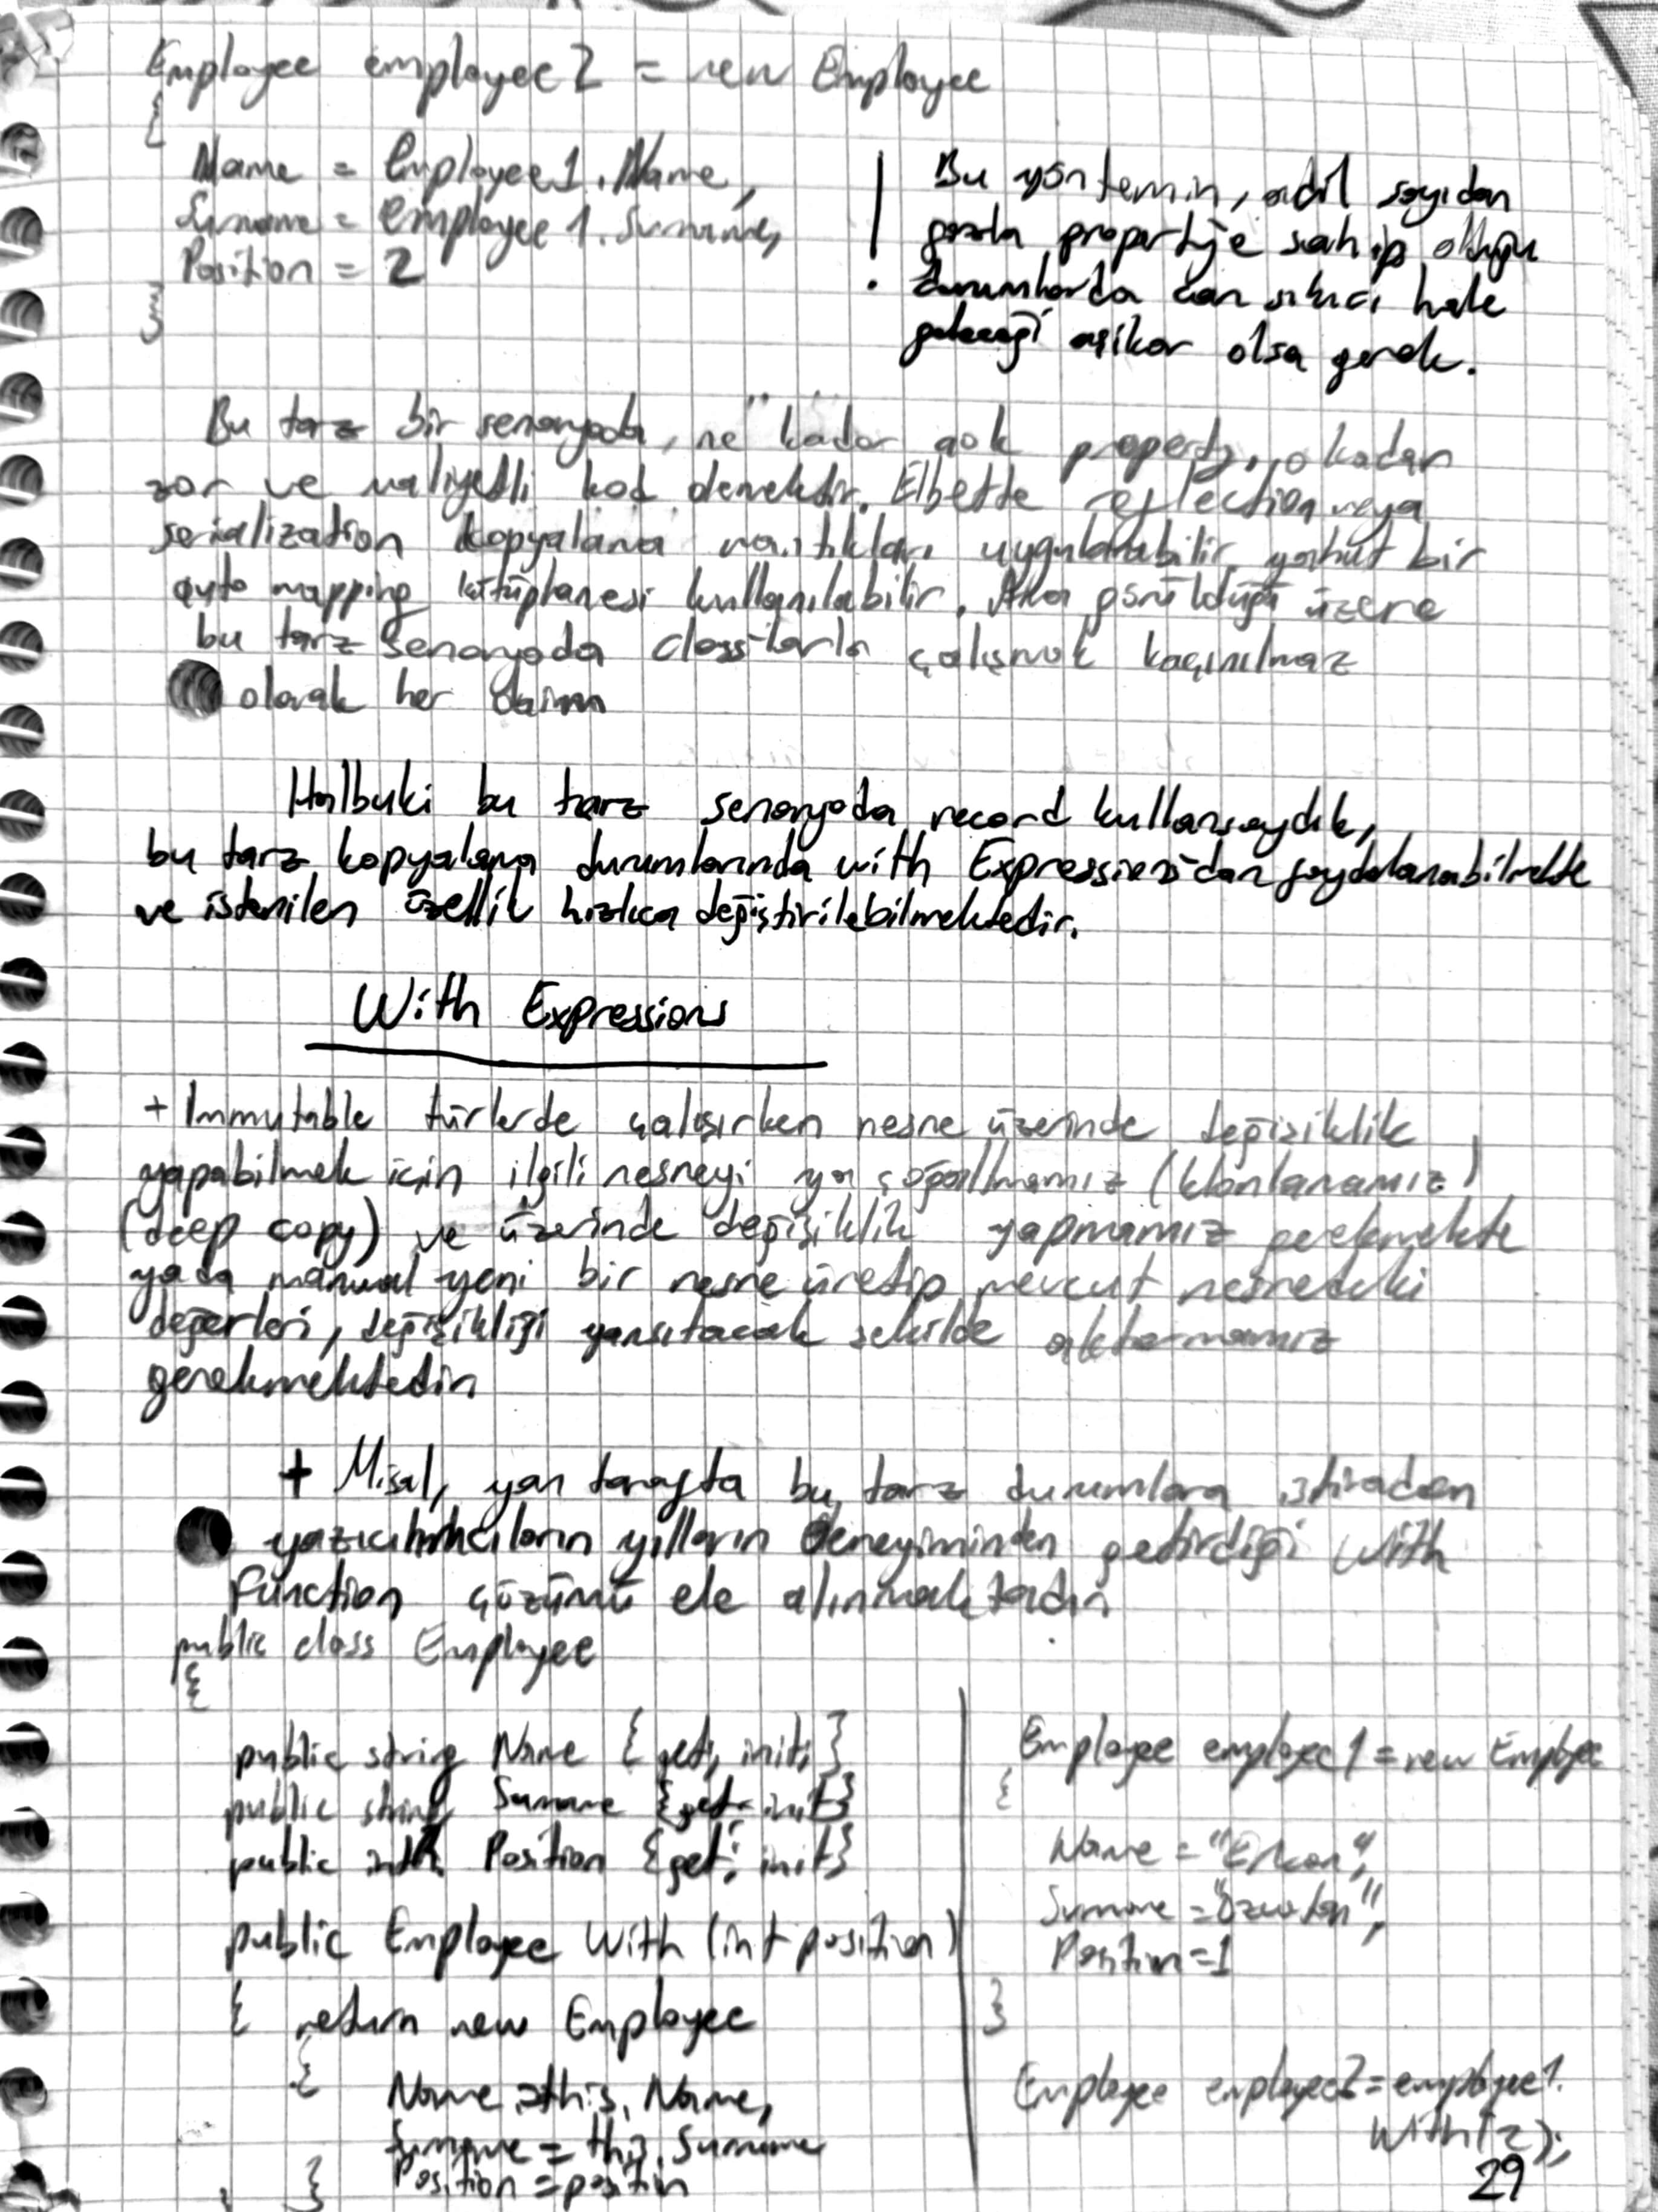 Employee employee2 = new Employee
{
Name = Employee1.Name,
Surname = employee1.Surname,
Position = 2
}
Bu yöntemin, adil sayıdan
fazla propertye sahip olduğu
durumlarda can sıkıcı hale
geleceği aşikar olsa gerek.
Bu tarz bir senaryoda, ne kadar çok property, o kadar
zor ve maliyetli kod demektir. Elbette reflection veya
serialization kopyalama mantıkları uygulanabilir yahut bir
auto mapping kütüphanesi kullanılabilir. Ama görüldüğü üzere
bu tarz senaryoda class'larla çalışmak kaçınılmaz
olarak her daim
Halbuki bu tarz senaryoda record kullansaydık,
bu tarz kopyalama durumlarında with Expressions'dan faydalanabilmekte
ve istenilen özellik hızlıca değiştirilebilmektedir.
With Expressions
+ Immutable türlerde çalışırken nesne üzerinde değişiklik
yapabilmek için ilgili nesneyi ya çoğaltmamız (klonlamamız)
(deep copy) ve üzerinde değişiklik yapmamız gerekmekte
yada manual yeni bir nesne üretip mevcut nesnedeki
değerleri, değişikliği yansıtacak şekilde aktarmamız
gerekmektedir
+ Misal, yan tarafta bu tarz durumlara istinaden
yazılımcıların yılların deneyiminden getirdiği With
Function çözümü ele alınmaktadır
public class Employee
{
public string Name {get; init;}
public string Surname {get; init}
public int Position {get; init}
public Employee With (int position)
{ return new Employee
{
Name = this.Name,
Surname = this.Surname
Position = positin
}
Employee employee1 = new Employee
{
Name = "Erkan",
Surname = "Özkutan",
Position = 1
}
Employee employee2 = employee1.
With(2);
29